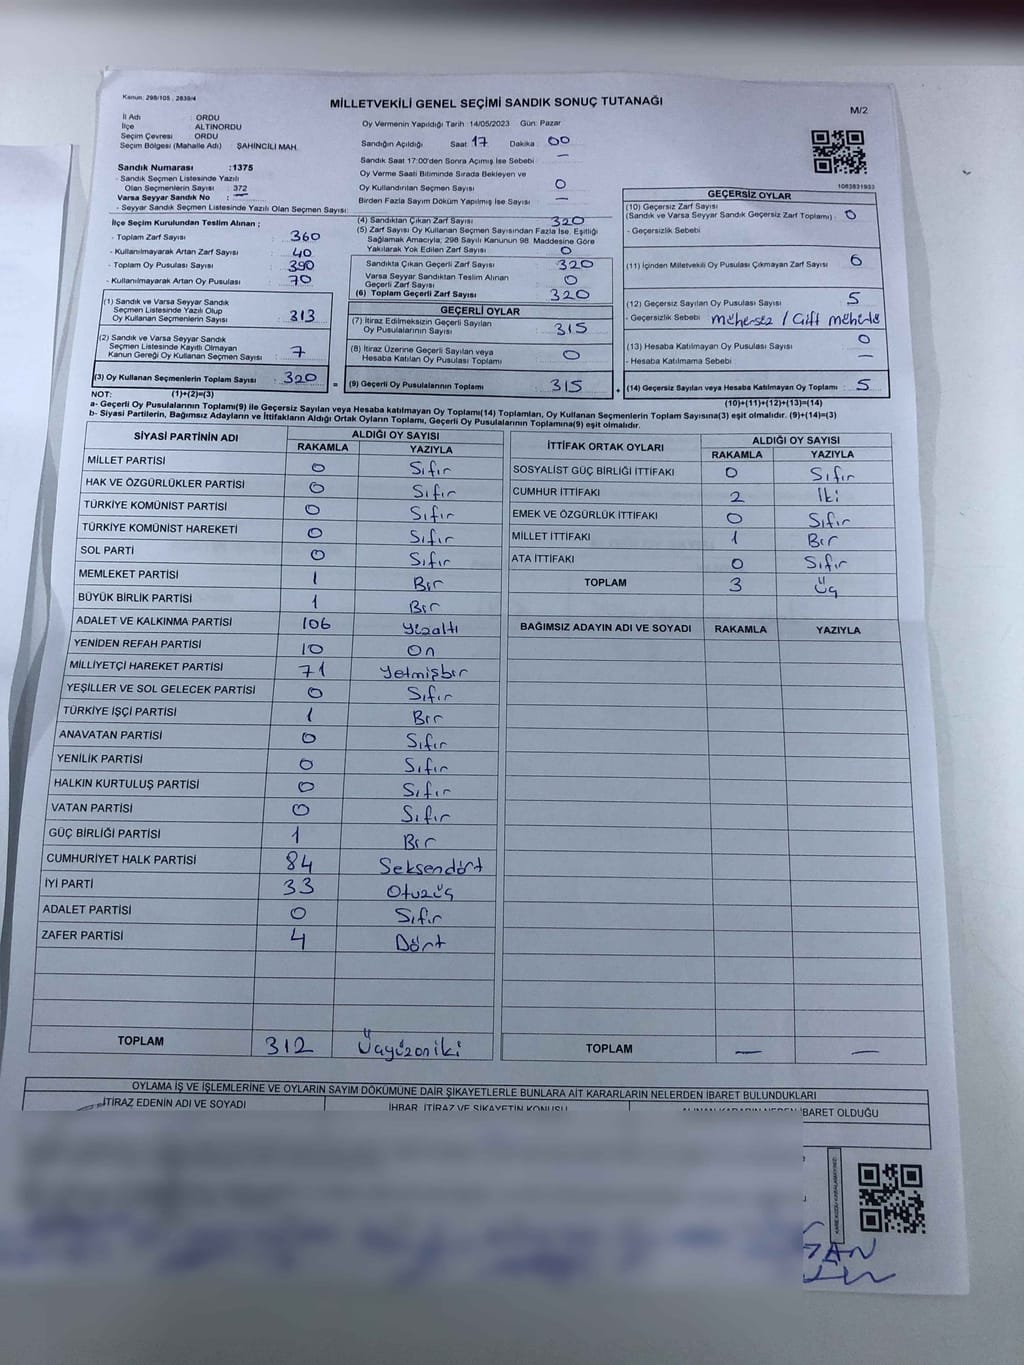 Kanun: 298/105 , 2839/4
MİLLETVEKİLİ GENEL SEÇİMİ SANDIK SONUÇ TUTANAĞI
M/2
İl Adı : ORDU
İlçe : ALTINORDU
Seçim Çevresi : ORDU
Seçim Bölgesi (Mahalle Adı) : ŞAHİNCİLİ MAH.
Sandık Numarası :1375
- Sandık Seçmen Listesinde Yazılı
Olan Seçmenlerin Sayısı : 372
Varsa Seyyar Sandık No : —
- Seyyar Sandık Seçmen Listesinde Yazılı Olan Seçmen Sayısı:
Oy Vermenin Yapıldığı Tarih :14/05/2023 Gün: Pazar
Sandığın Açıldığı Saat 17 Dakika : 00
Sandık Saat 17:00'den Sonra Açımış İse Sebebi : —
Oy Verme Saati Bitiminde Sırada Bekleyen ve
Oy Kullandırılan Seçmen Sayısı : 0
Birden Fazla Sayım Döküm Yapılmış İse Sayısı : —
1083831933
İlçe Seçim Kurulundan Teslim Alınan ;
- Toplam Zarf Sayısı : 360
- Kullanılmayarak Artan Zarf Sayısı : 40
- Toplam Oy Pusulası Sayısı : 390
- Kullanılmayarak Artan Oy Pusulası : 70
(1) Sandık ve Varsa Seyyar Sandık
Seçmen Listesinde Yazılı Olup
Oy Kullanan Seçmenlerin Sayısı : 313
(2) Sandık ve Varsa Seyyar Sandık
Seçmen Listesinde Kayıtlı Olmayan
Kanun Gereği Oy Kullanan Seçmen Sayısı : 7
(3) Oy Kullanan Seçmenlerin Toplam Sayısı : 320
(1)+(2)=(3)
(4) Sandıktan Çıkan Zarf Sayısı : 320
(5) Zarf Sayısı Oy Kullanan Seçmen Sayısından Fazla İse, Eşitliği
Sağlamak Amacıyla; 298 Sayılı Kanunun 98. Maddesine Göre
Yakılarak Yok Edilen Zarf Sayısı : 0
Sandıkta Çıkan Geçerli Zarf Sayısı : 320
Varsa Seyyar Sandıktan Teslim Alınan
Geçerli Zarf Sayısı : 0
(6) Toplam Geçerli Zarf Sayısı : 320
GEÇERLİ OYLAR
(7) İtiraz Edilmeksizin Geçerli Sayılan
Oy Pusulalarının Sayısı : 315
(8) İtiraz Üzerine Geçerli Sayılan veya
Hesaba Katılan Oy Pusulası Toplamı : 0
= (9) Geçerli Oy Pusulalarının Toplamı : 315
GEÇERSİZ OYLAR
(10) Geçersiz Zarf Sayısı
(Sandık ve Varsa Seyyar Sandık Geçersiz Zarf Toplamı) : 0
- Geçersizlik Sebebi
(11) İçinden Milletvekili Oy Pusulası Çıkmayan Zarf Sayısı : 0
(12) Geçersiz Sayılan Oy Pusulası Sayısı : 5
- Geçersizlik Sebebi : mühersiz / Çift mühürlü
(13) Hesaba Katılmayan Oy Pusulası Sayısı : 0
- Hesaba Katılmama Sebebi : —
+ (14) Geçersiz Sayılan veya Hesaba Katılmayan Oy Toplamı : 5
(10)+(11)+(12)+(13)=(14)
NOT:
a- Geçerli Oy Pusulalarının Toplamı(9) ile Geçersiz Sayılan veya Hesaba katılmayan Oy Toplamı(14) Toplamları, Oy Kullanan Seçmenlerin Toplam Sayısına(3) eşit olmalıdır. (9)+(14)=(3)
b- Siyasi Partilerin, Bağımsız Adayların ve İttifakların Aldığı Ortak Oyların Toplamı, Geçerli Oy Pusulalarının Toplamına(9) eşit olmalıdır.
SİYASİ PARTİNİN ADI ALDIĞI OY SAYISI
RAKAMLA YAZIYLA
MİLLET PARTİSİ 0 Sıfır
HAK VE ÖZGÜRLÜKLER PARTİSİ 0 Sıfır
TÜRKİYE KOMÜNİST PARTİSİ 0 Sıfır
TÜRKİYE KOMÜNİST HAREKETİ 0 Sıfır
SOL PARTİ 0 Sıfır
MEMLEKET PARTİSİ 1 Bir
BÜYÜK BİRLİK PARTİSİ 1 Bir
ADALET VE KALKINMA PARTİSİ 106 Yüzaltı
YENİDEN REFAH PARTİSİ 10 On
MİLLİYETÇİ HAREKET PARTİSİ 71 Yetmişbir
YEŞİLLER VE SOL GELECEK PARTİSİ 0 Sıfır
TÜRKİYE İŞÇİ PARTİSİ 1 Bir
ANAVATAN PARTİSİ 0 Sıfır
YENİLİK PARTİSİ 0 Sıfır
HALKIN KURTULUŞ PARTİSİ 0 Sıfır
VATAN PARTİSİ 0 Sıfır
GÜÇ BİRLİĞİ PARTİSİ 1 Bir
CUMHURİYET HALK PARTİSİ 84 Seksendört
İYİ PARTİ 33 Otuzüç
ADALET PARTİSİ 0 Sıfır
ZAFER PARTİSİ 4 Dört
TOPLAM 312 Üçyüzoniki
İTTİFAK ORTAK OYLARI ALDIĞI OY SAYISI
RAKAMLA YAZIYLA
SOSYALİST GÜÇ BİRLİĞİ İTTİFAKI 0 Sıfır
CUMHUR İTTİFAKI 2 İki
EMEK VE ÖZGÜRLÜK İTTİFAKI 0 Sıfır
MİLLET İTTİFAKI 1 Bir
ATA İTTİFAKI 0 Sıfır
TOPLAM 3 Üç
BAĞIMSIZ ADAYIN ADI VE SOYADI RAKAMLA YAZIYLA
TOPLAM — —
OYLAMA İŞ VE İŞLEMLERİNE VE OYLARIN SAYIM DÖKÜMÜNE DAİR ŞİKAYETLERLE BUNLARA AİT KARARLARIN NELERDEN İBARET BULUNDUKLARI
İTİRAZ EDENİN ADI VE SOYADI İHBAR, İTİRAZ VE ŞİKAYETİN KONUSU ALINAN KARARIN NEDEN İBARET OLDUĞU